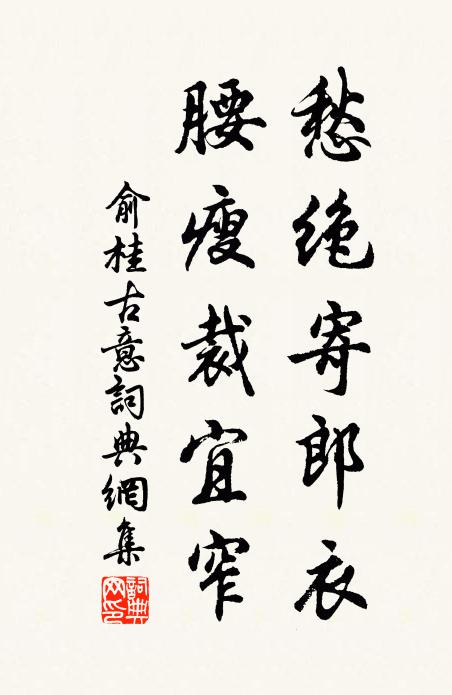 愁绝寄郎衣
腰瘦裁宜窄
俞桂古意詞典網集
詞典网印